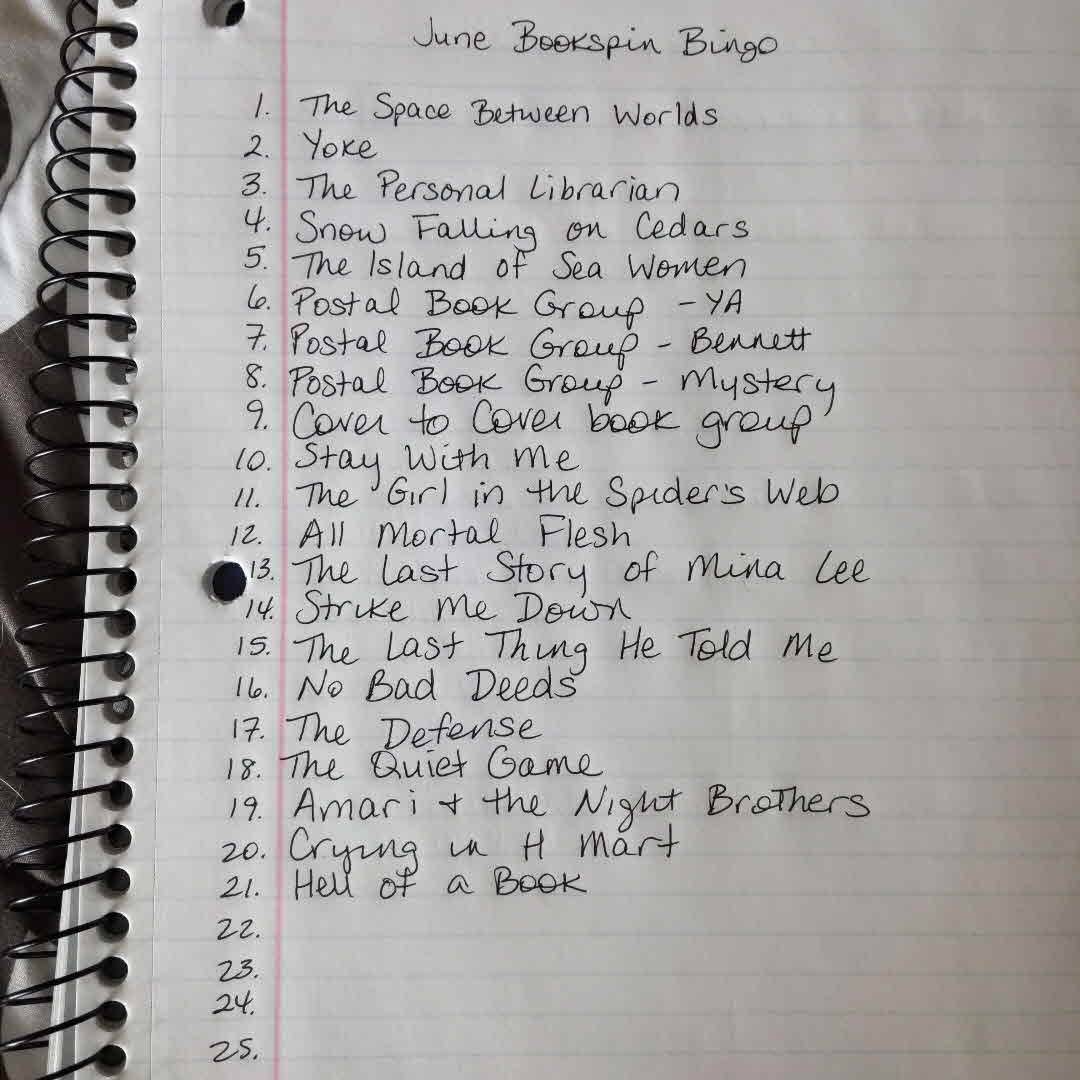 June Bookspin Bingo
1. The Space Between Worlds
2. Yoke
3. The Personal Librarian
4. Snow Falling on Cedars
5. The Island of Sea Women
6. Postal Book Group - YA
7. Postal Book Group - Bennett
8. Postal Book Group - Mystery
9. Cover to Cover book group
10. Stay With Me
11. The Girl in the Spider's Web
12. All Mortal Flesh
13. The Last Story of Mina Lee
14. Strike Me Down
15. The Last Thing He Told Me
16. No Bad Deeds
17. The Defense
18. The Quiet Game
19. Amari + the Night Brothers
20. Crying in H Mart
21. Hell of a Book
22.
23.
24.
25.